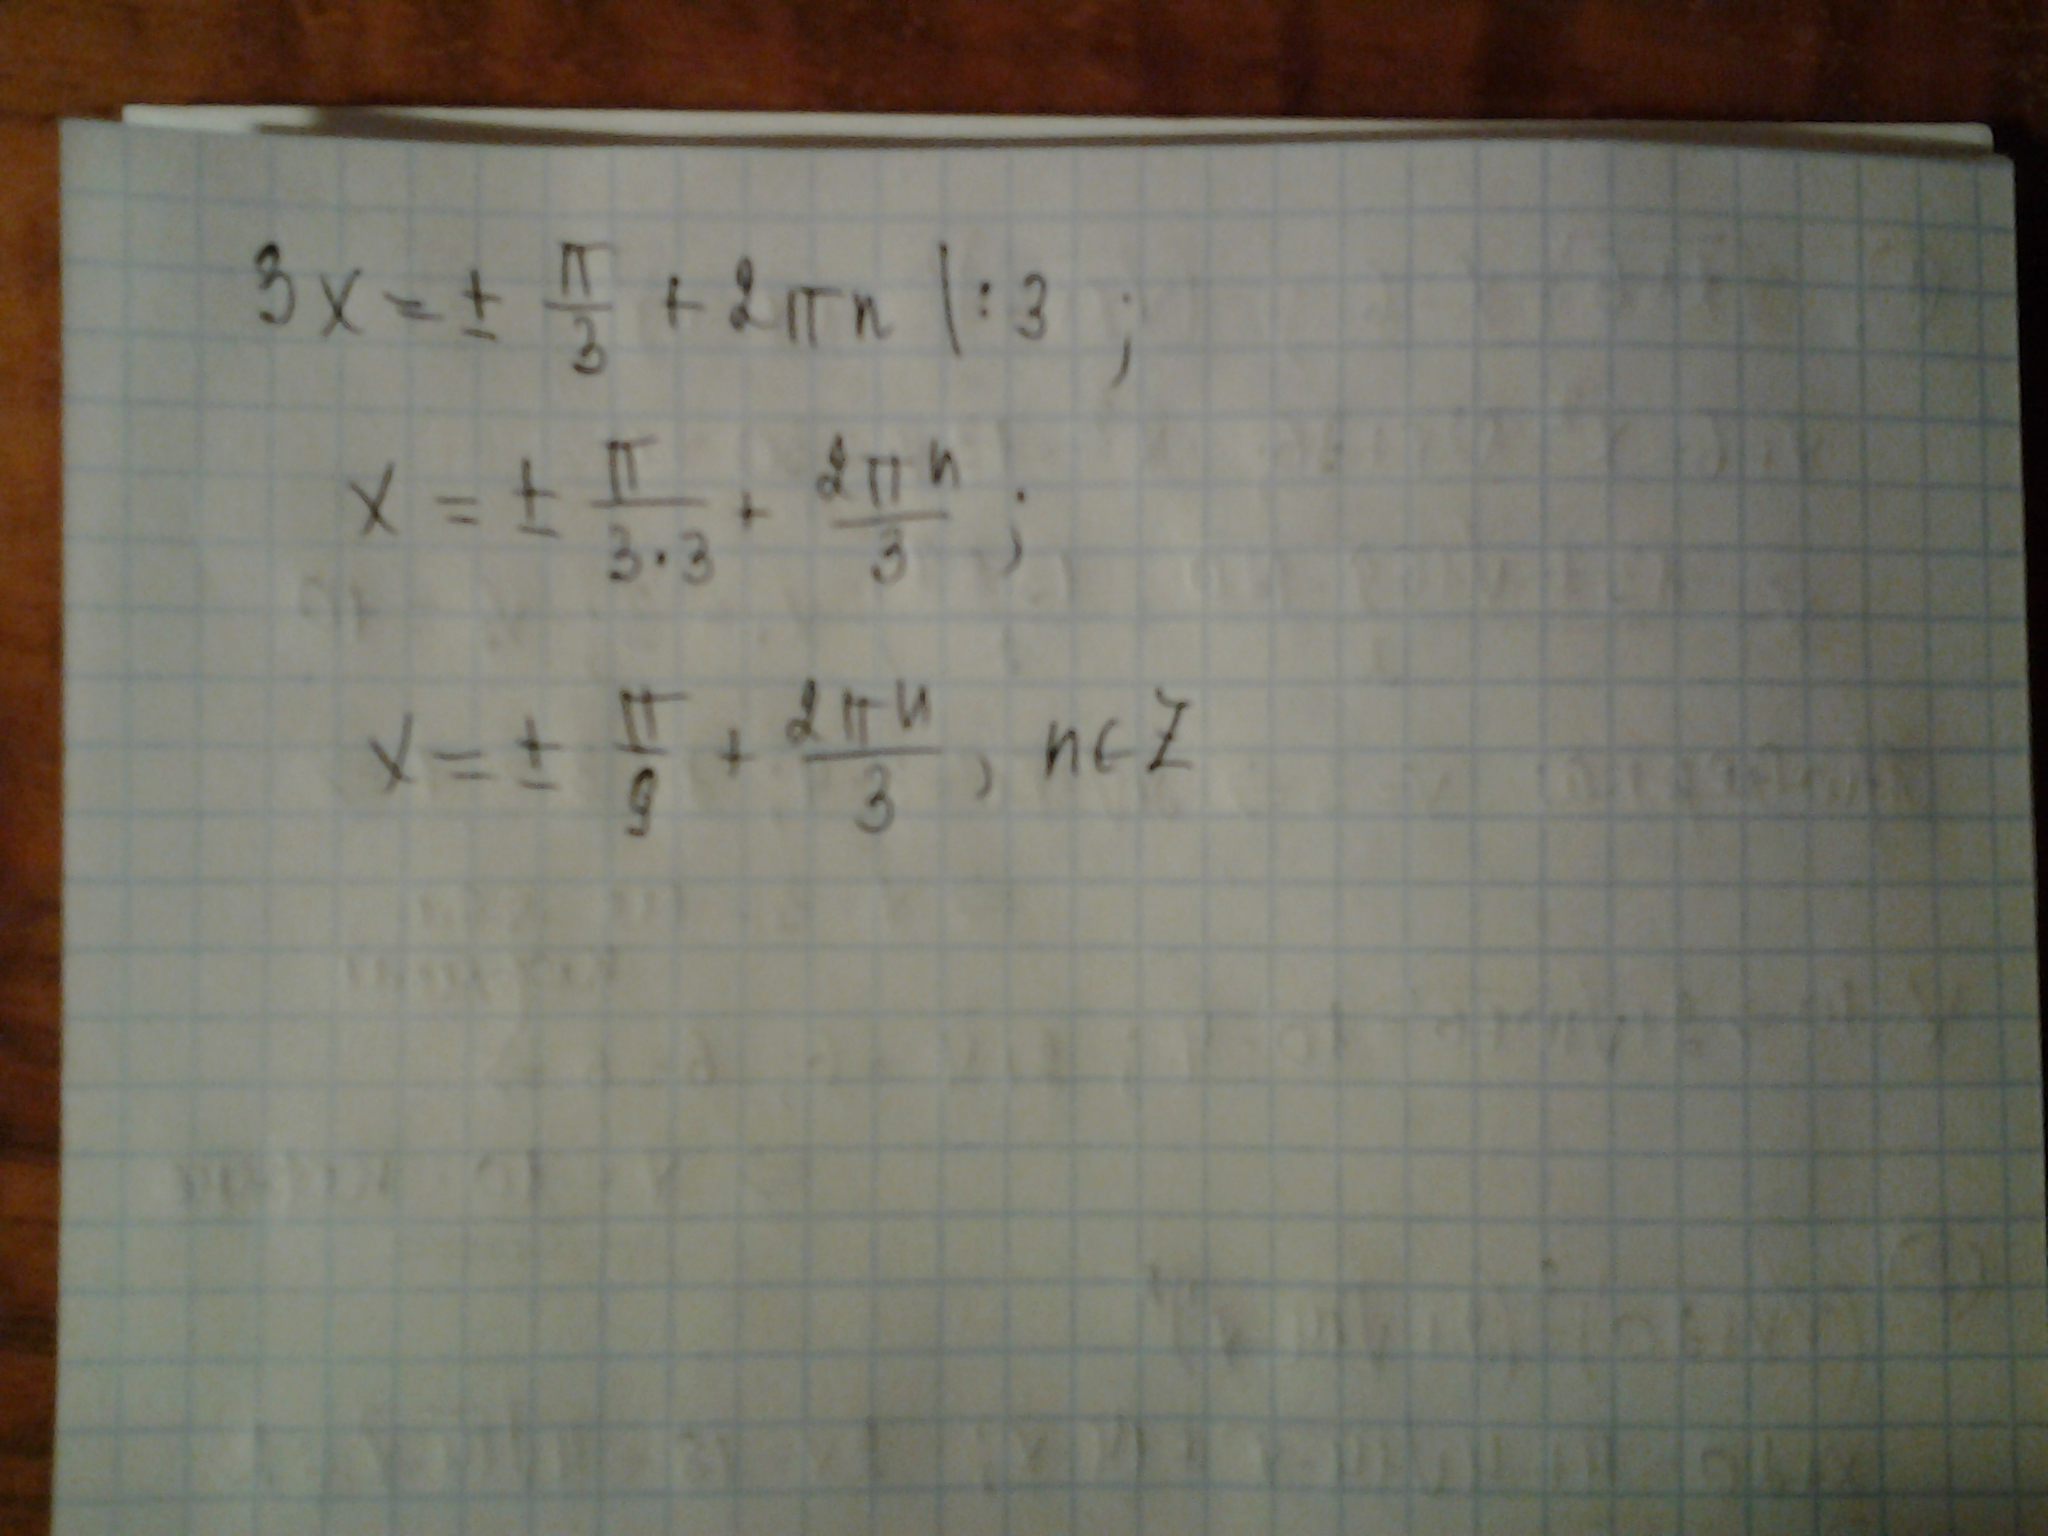 3x = ± π/3 + 2πn |:3 ;
x = ± π/(3·3) + 2πn/3 ;
x = ± π/9 + 2πn/3 , n∈Z